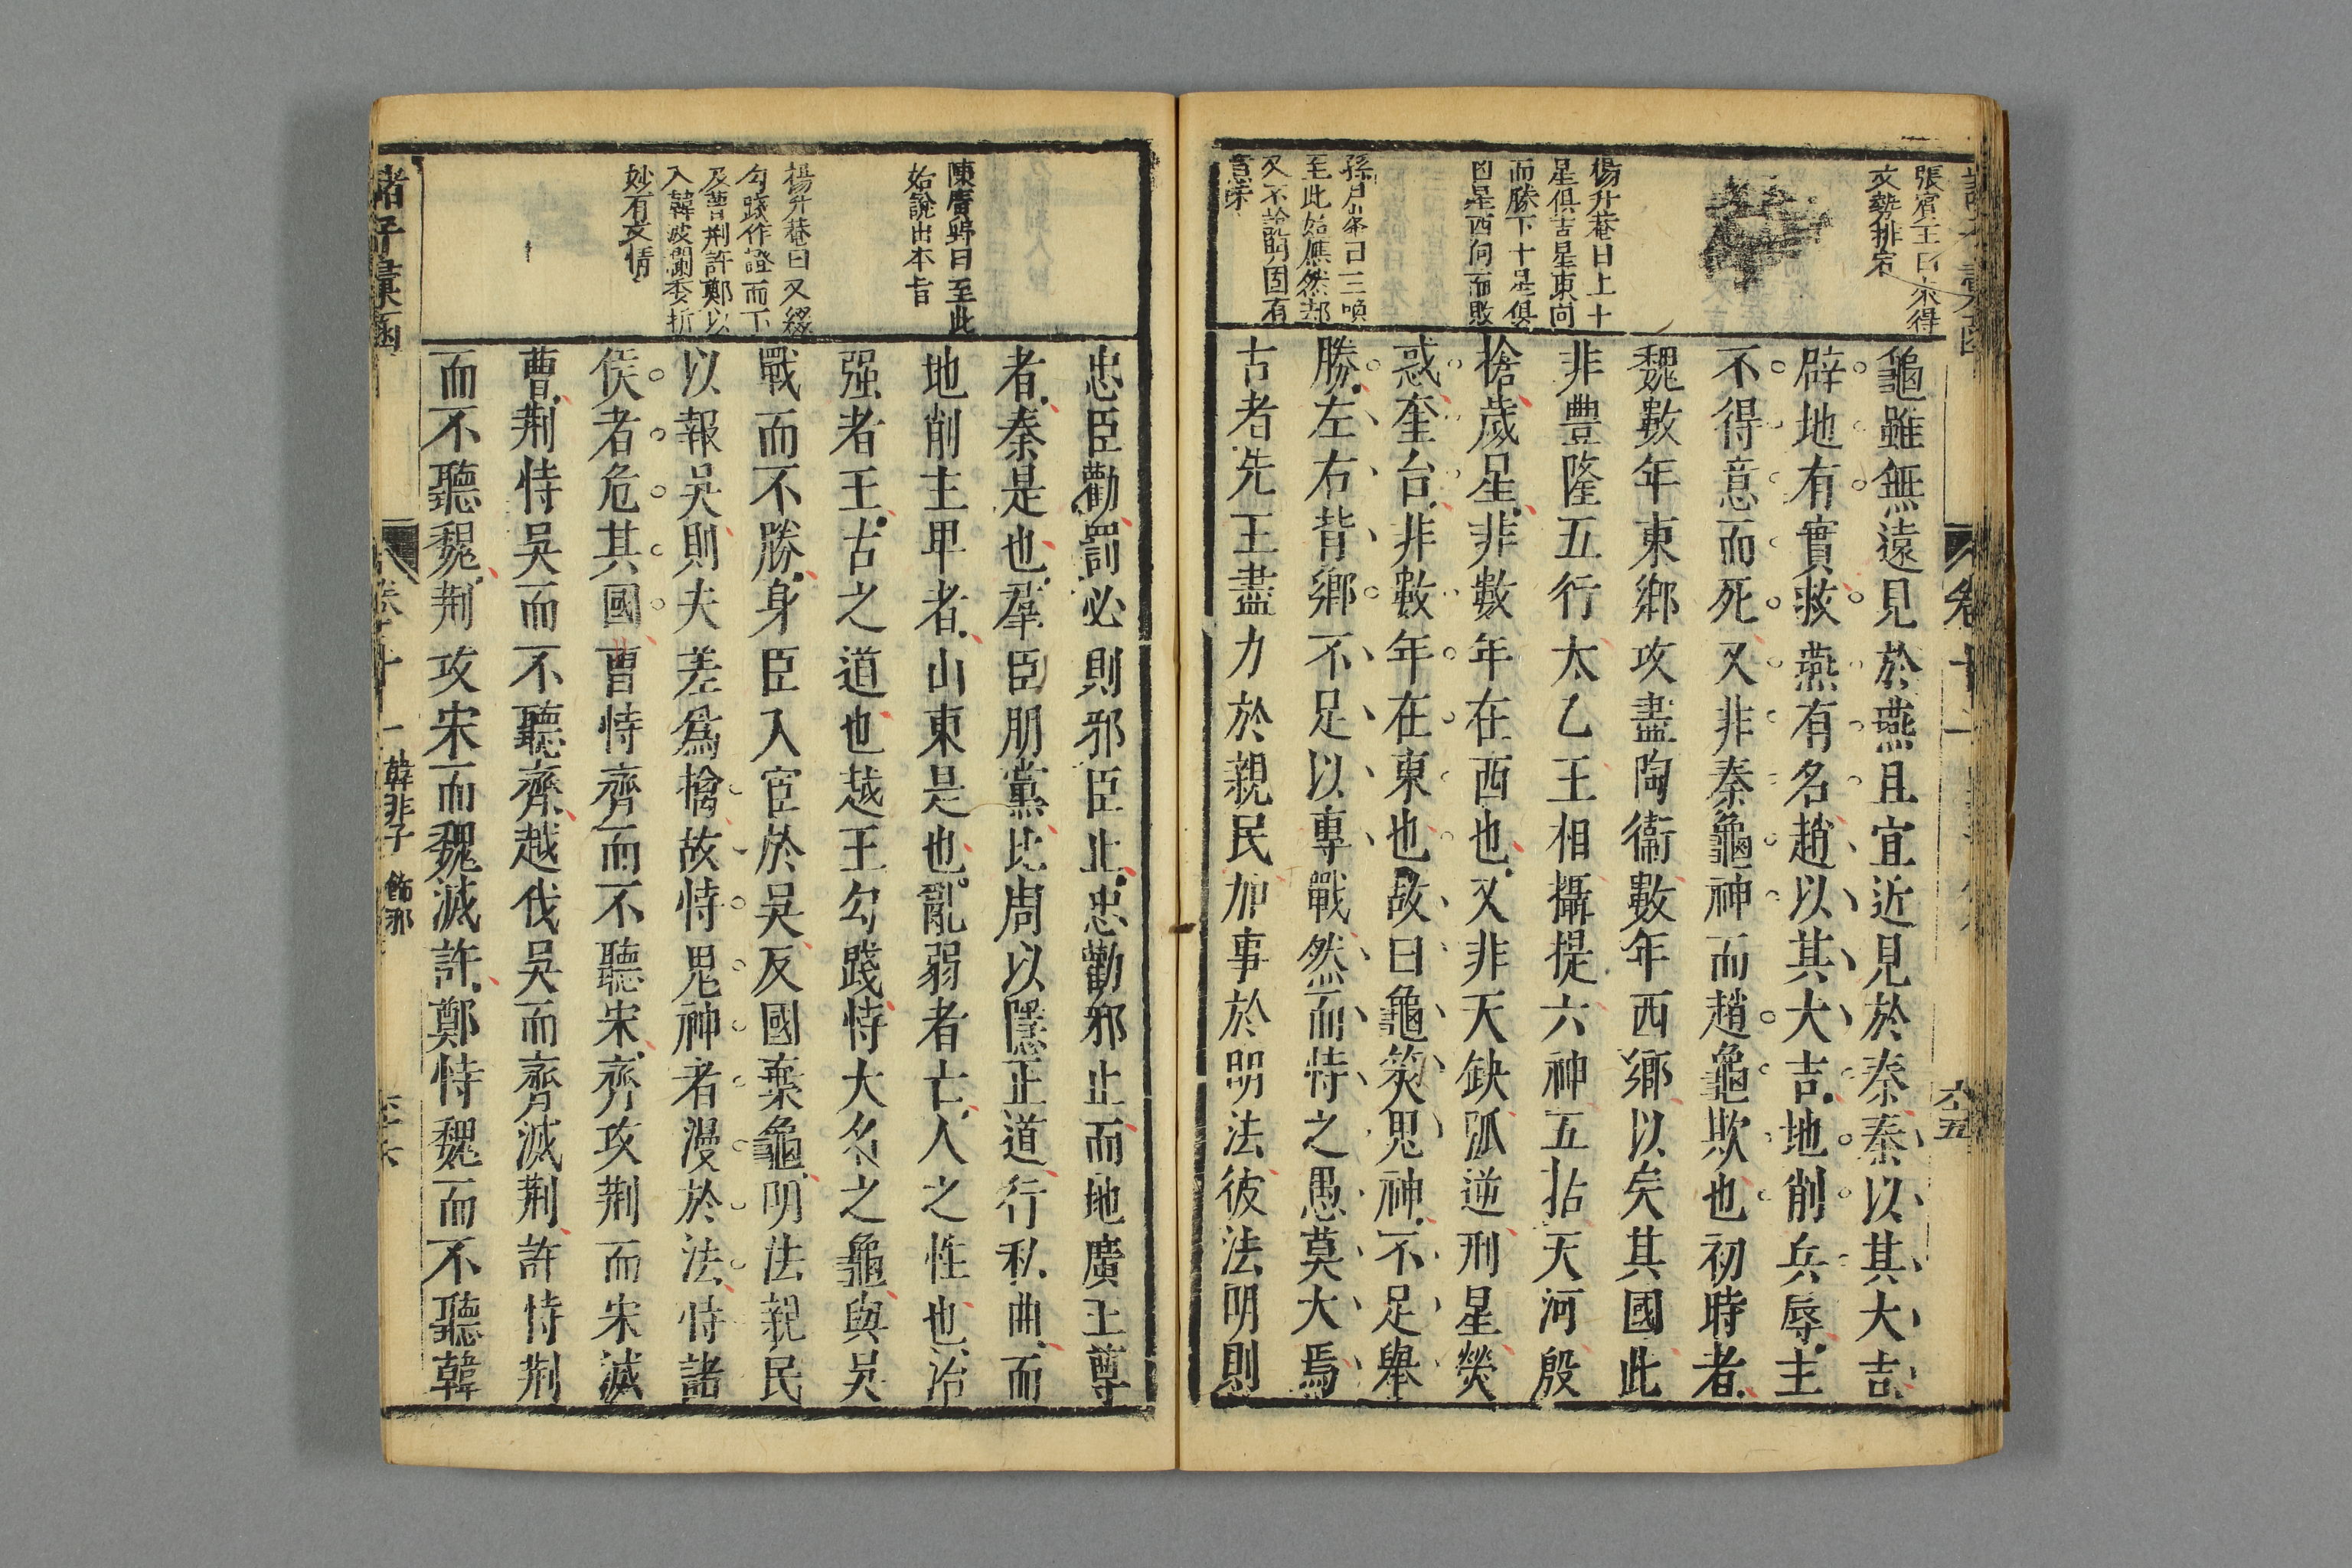 張賓王曰亦得
文勢排宕
楊升菴曰上十
星俱吉星東向
而勝下十星俱
凶星西向而敗
孫月峯曰三喚
至此始應然却
又不說明固有
意味
龜雖無遠見於燕且宜近見於秦秦以其大吉
辟地有實救燕有名趙以其大吉地削兵辱主
不得意而死又非秦龜神而趙龜欺也初時者
魏數年東鄉攻盡陶衛數年西鄉以失其國此
非豊隆五行太乙王相攝提六神五括天河殷
搶歲星非數年在西也又非天缺弧逆刑星熒
惑奎台非數年在東也故曰龜筴鬼神不足舉
勝左右背鄉不足以專戰然而恃之愚莫大焉
古者先王盡力於親民加事於明法彼法明則
卷十一
六十五
陳廣野曰至此
始說出本旨
楊升菴曰又綴
勾踐作證而下
及曹荆許鄭以
入韓波瀾委折
妙有文情
忠臣勸罰必則邪臣止忠勸邪止而地廣主尊
者秦是也羣臣朋黨比周以隱正道行私曲而
地削主卑者山東是也亂弱者亡人之性也治
强者王古之道也越王勾踐恃大名之龜與吳
戰而不勝身臣入宦於吳反國棄龜明法親民
以報吳則夫差爲擒故恃鬼神者漫於法恃諸
侯者危其國曹恃齊而不聽宋齊攻荆而宋滅
曹荆恃吳而不聽齊越伐吳而齊滅荆許恃荆
而不聽魏荆攻宋而魏滅許鄭恃魏而不聽韓
諸子彙函
卷十一
韓非子 飾邪